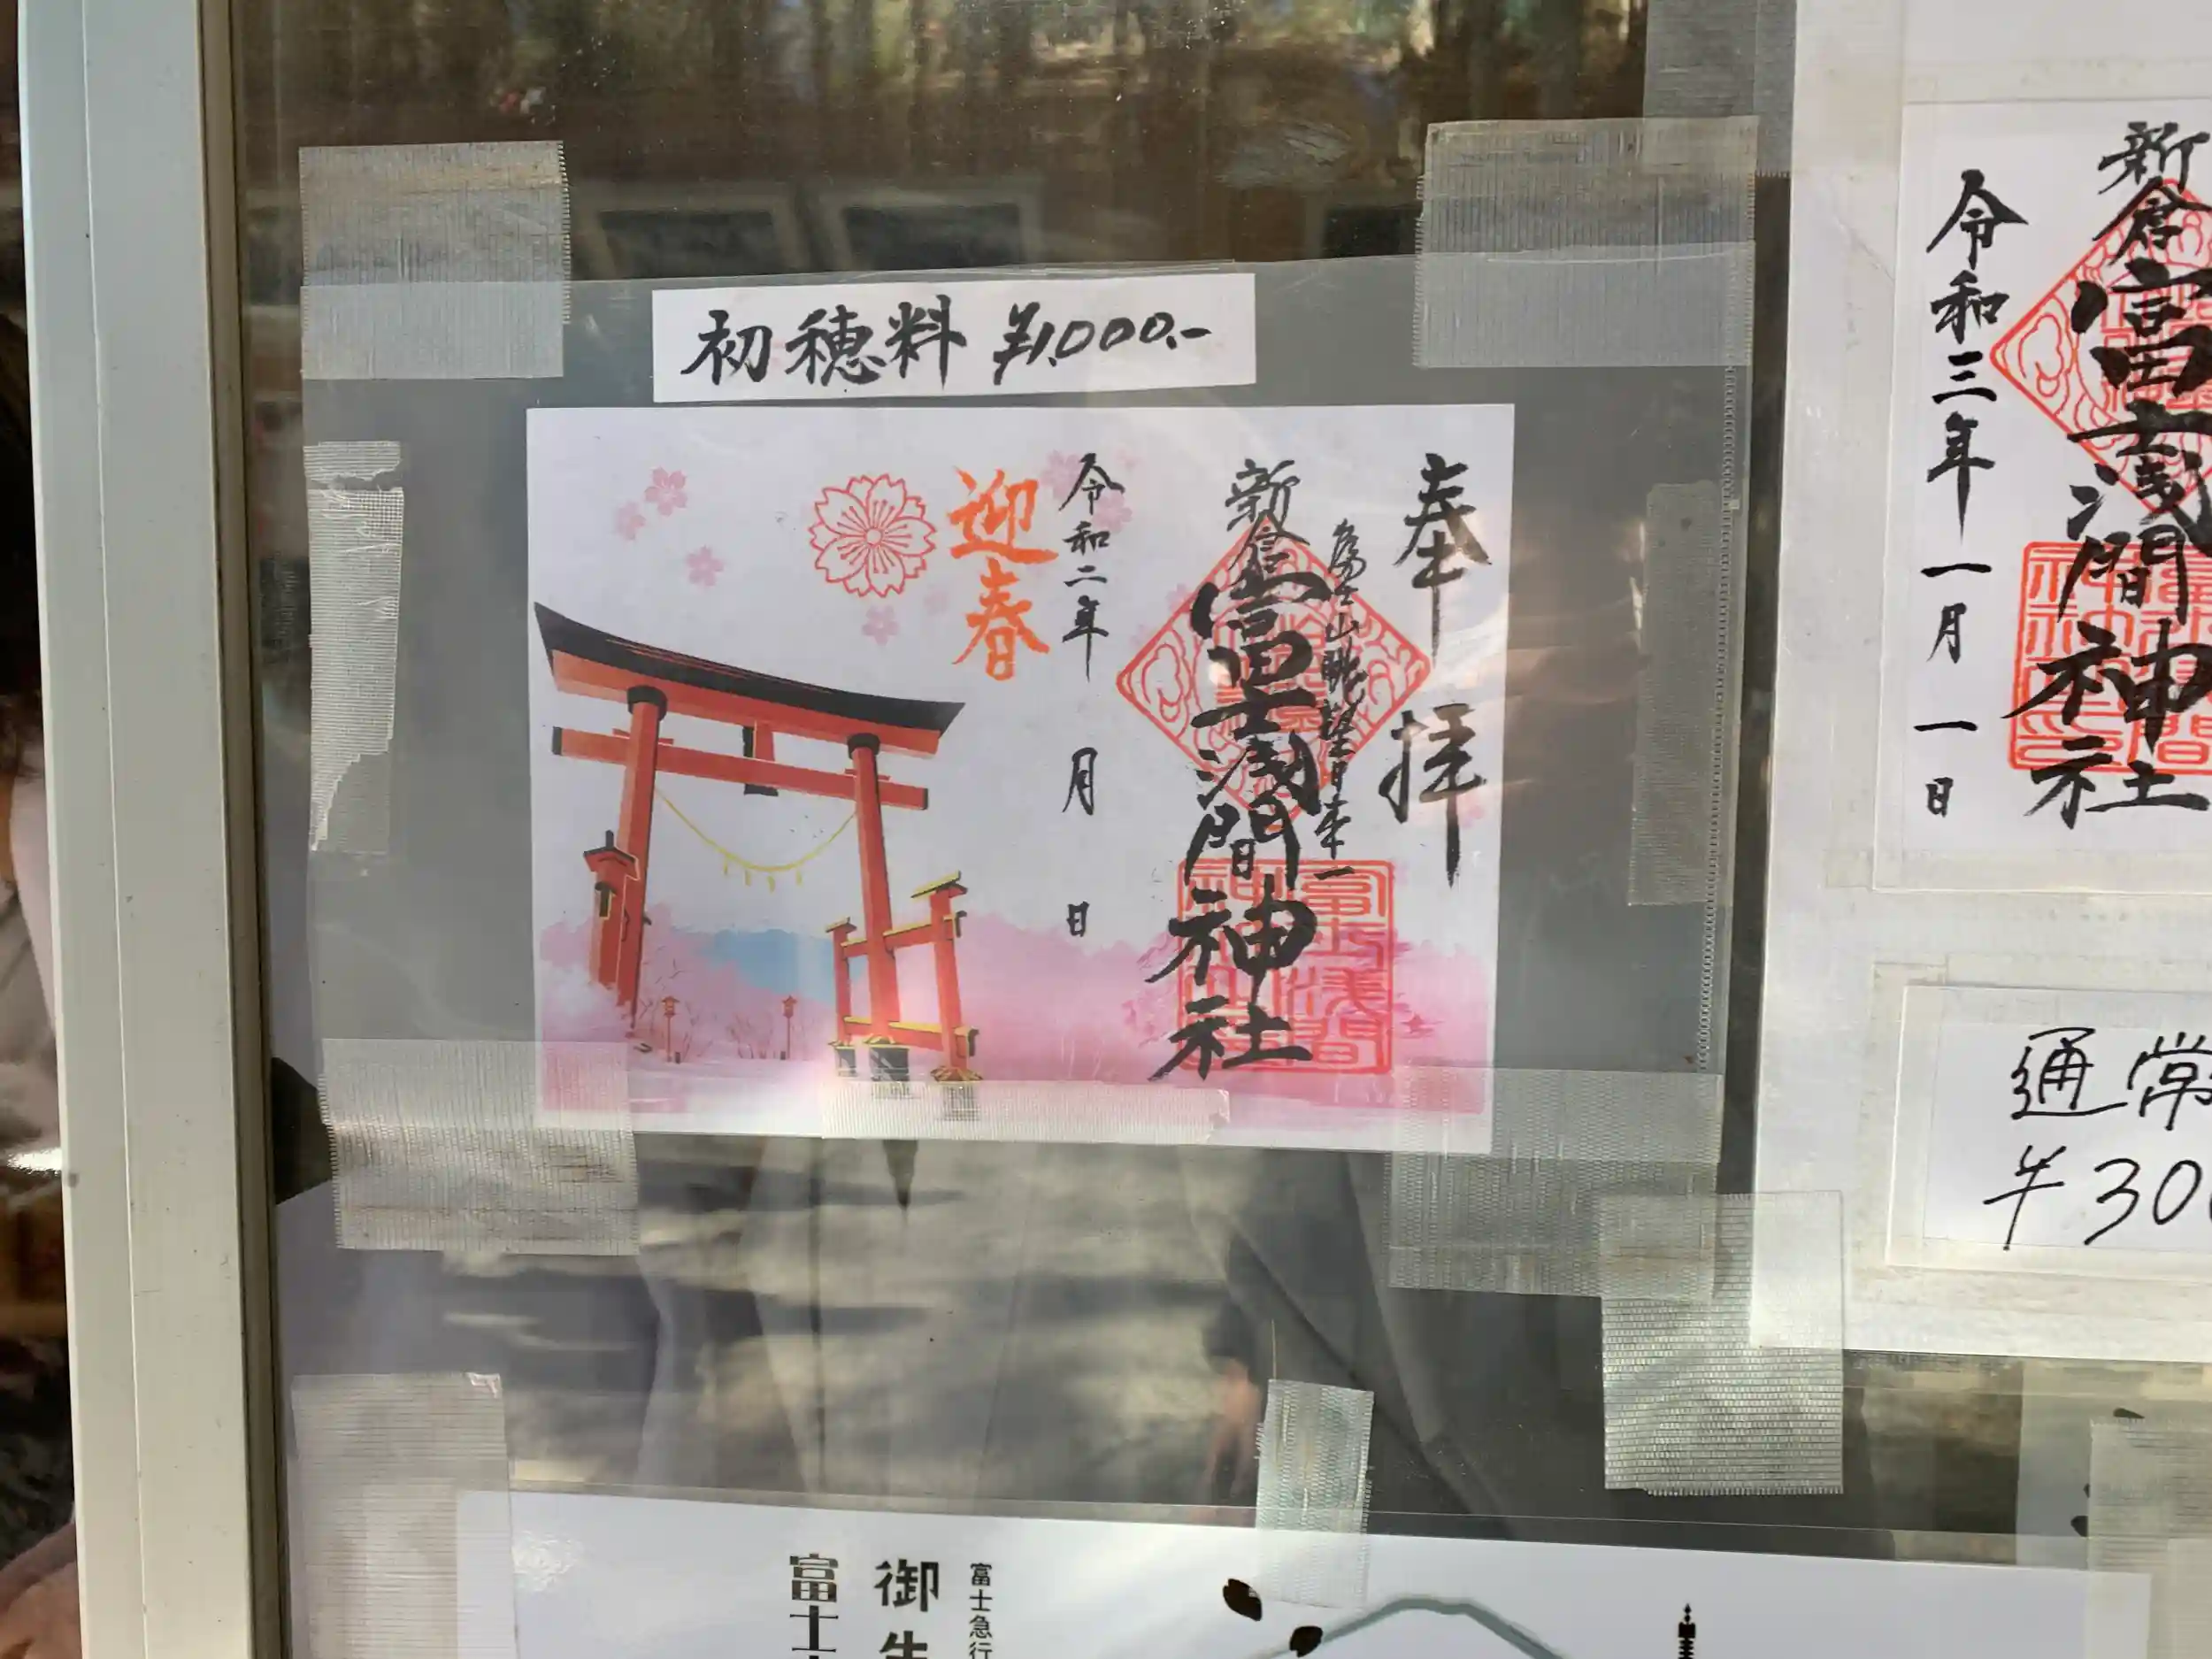 初穂料 ¥1,000.-
奉拝
富士山眺望日本一
新倉富士浅間神社
令和二年 月 日
迎春
富士浅間
神社
新倉富士浅間神社
令和三年一月一日
通常
¥30
富士急行
御朱
富士